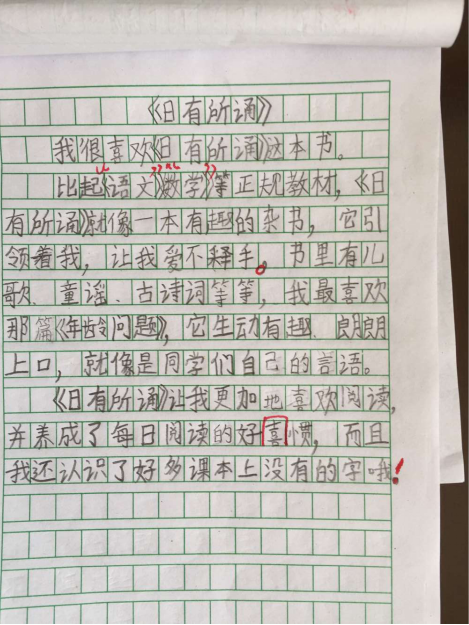 《日有所诵》
我很喜欢《日有所诵》这本书。
比起《语文》《数学》等正规教材，《日
有所诵》就像一本有趣的杂书，它引
领着我，让我爱不释手。书里有儿
歌、童谣、古诗词等等，我最喜欢
那篇《年龄问题》，它生动有趣、朗朗
上口，就像是同学们自己的言语。
《日有所诵》让我更加地喜欢阅读，
并养成了每日阅读的好喜惯，而且
我还认识了好多课本上没有的字哦！